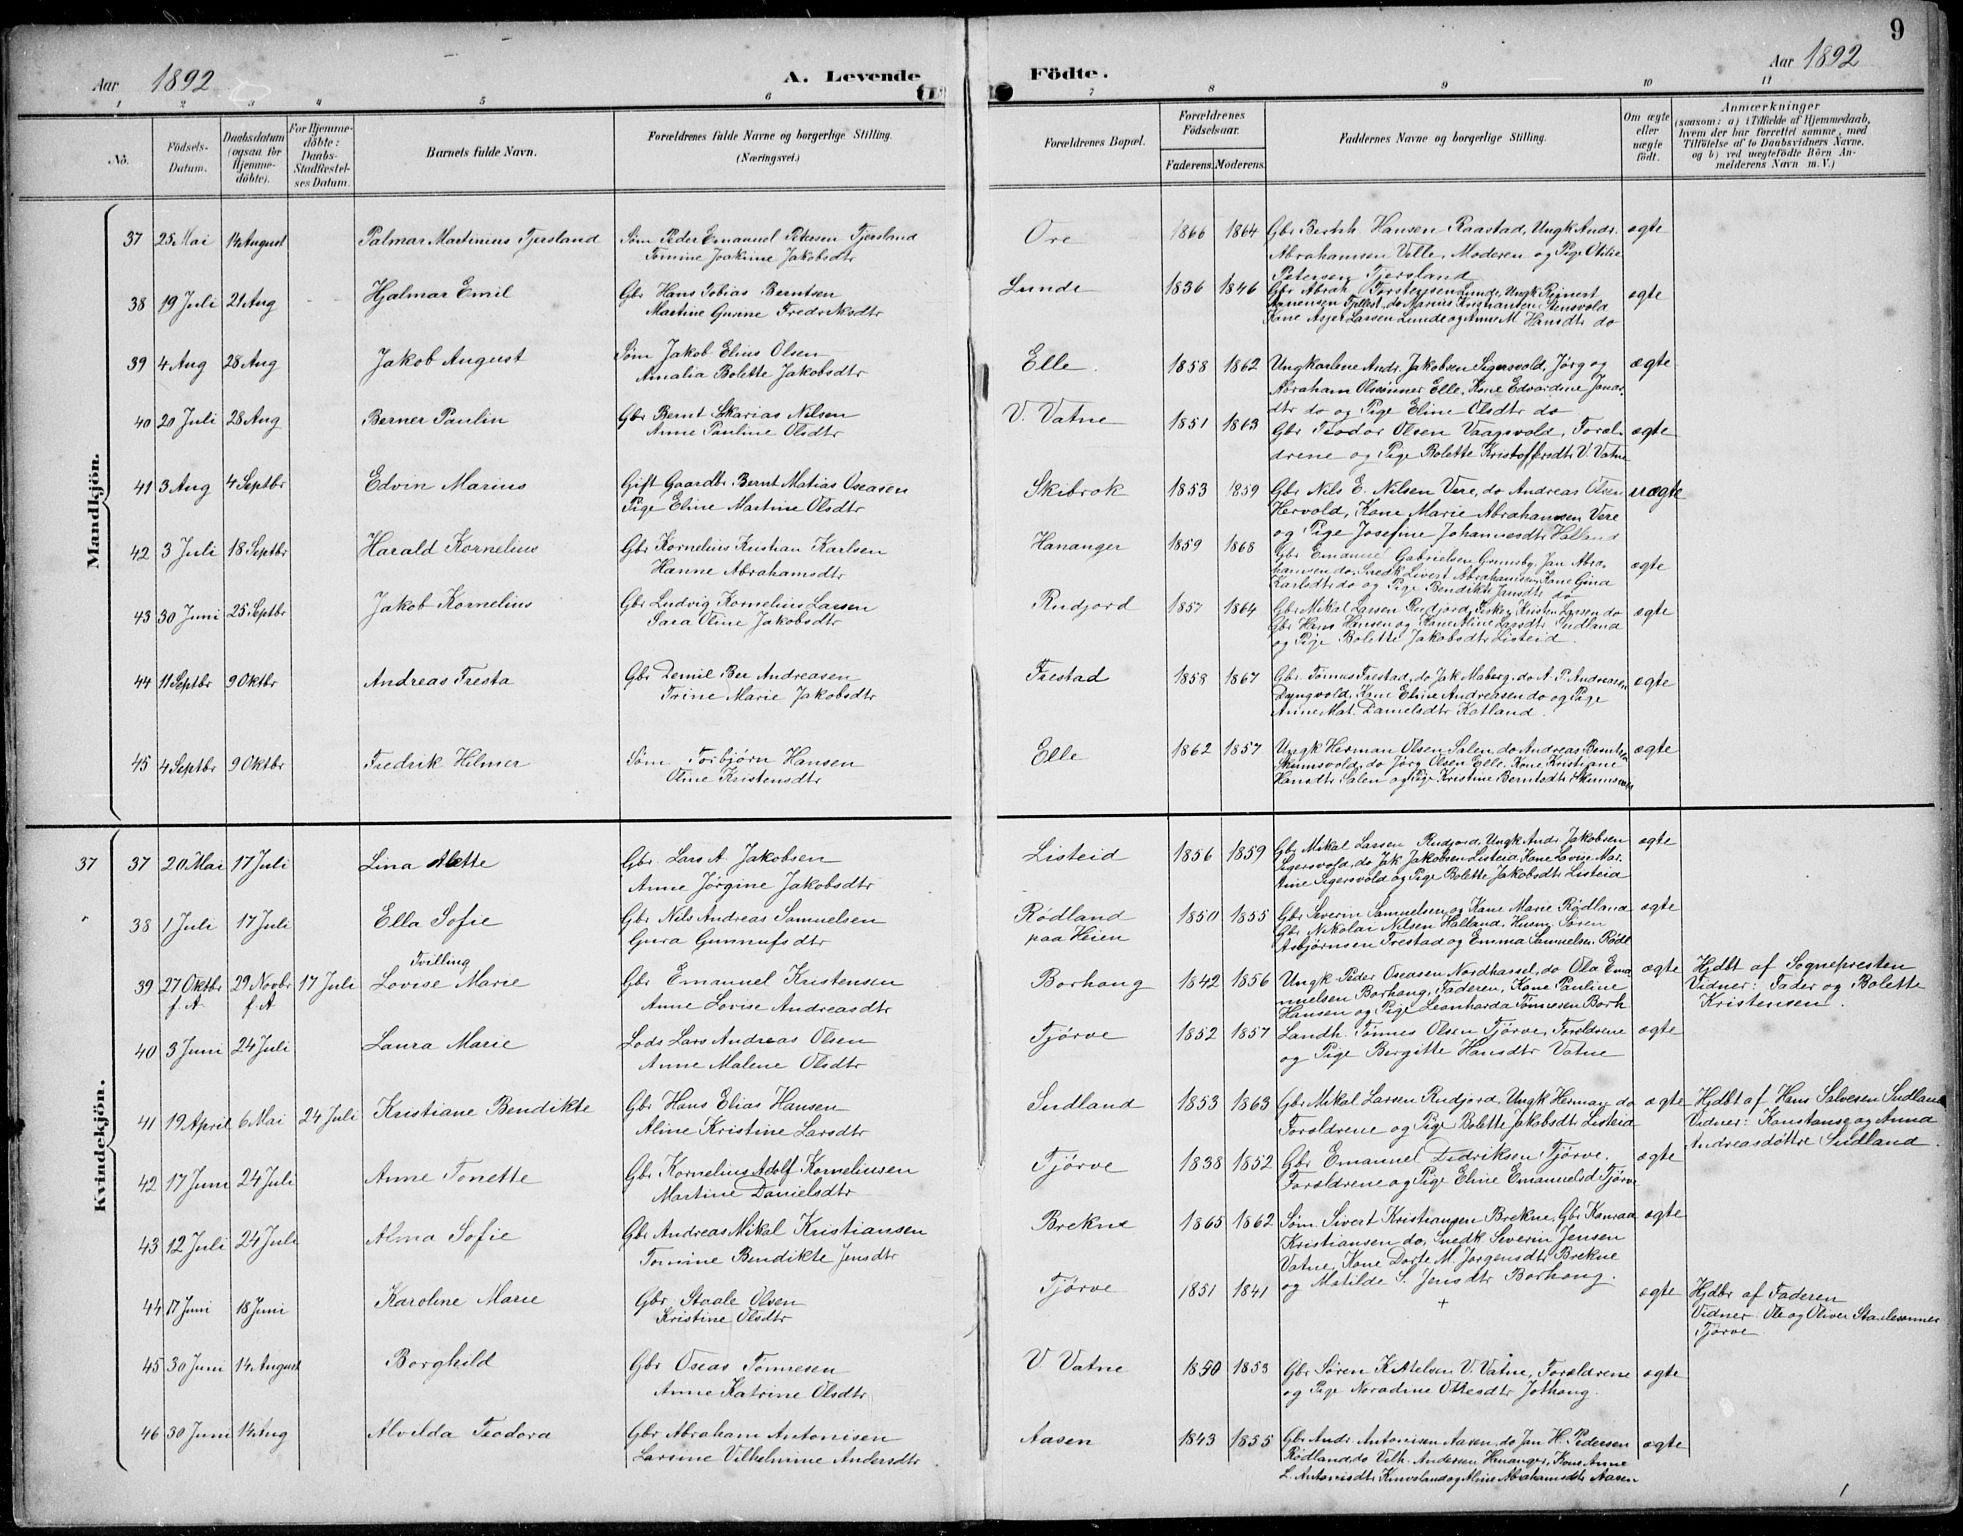 9
Aar 1892 A. Levende Födte. Aar 1892
1 2 3 4 5 6 7 8 9 10 11
No. Födsels-Datum. Daabsdatum (ogsaa for Hjemmedöbte). For Hjemmedöbte: Daabs-Stadfæstelses Datum. Barnets fulde Navn. Forældrenes fulde Navne og borgerlige Stilling. (Næringsvei.) Forældrenes Bopæl. Forældrenes Födselsaar. Faderens. Moderens. Faddernes Navne og borgerlige Stilling. Om ægte eller uægte födt. Anmærkninger (saasom: a) i Tilfælde af Hjemmedaab, hvem der har forrettet samme, med Tilföielse af to Daabsvidners Navne, og b) ved uægtefödte Börn Anmelderens Navn m. V.)
Mandkjön.
37 25 Mai 14 August Palmar Martinius Tjersland Søm Peder Emanuel Petersen Tjersland Ore 1866 1864 Gbr Berth. Hansen Raastad, Ungk Andr. ægte
Tomine Joakime Jakobsdtr Abrahamsen Velle, Moderen og Pige Otilie
Petersen Tjersland
38 19 Juli 21 Aug Hjalmar Emil Gbr Hans Tobias Berntsen Lunde 1836 1846 Gbr Abrah. Torstensen Lunde, Ungk Reinert ægte
Martine Gurine Fredriksdtr do Marius Kristiansen
Kone Asger Larsen Lunde og Anne M Hansdtr do
39 4 Aug 28 Aug Jakob August Søm Jakob Elius Olsen Elle 1858 1862 Ungkarlene Andr. Jakobsen Sigersvold, Jørg og ægte
Amalia Bolette Jakobsdtr Abraham Olsønner Elle, Kone Edvardine Jonas
dtr do og Pige Eline Olsdtr do
40 20 Juli 28 Aug Berner Paulin Gbr Bernt Skarias Nilsen V. Vatne 1851 1863 Gbr Teodor Olsen Vaagsvold, Foræl- ægte
Anne Pauline Olsdtr drene og Pige Bolette Kristoffersdtr V. Vatne
41 3 Aug 4 Septbr Edvin Marius Gift Gaardbr. Bernt Matias Oseasen Skibrok 1853 1859 Gbr Nils E. Nilsen Vere, do Andreas Olsen uægte
Pige Eline Martine Olsdtr Hervold, Kone Marie Abrahamsen Vere
og Pige Josefine Johannesdtr Halland
42 3 Juli 18 Septbr Harald Kornelius Gbr Kornelius Kristian Karlsen Hananger 1859 1868 Gbr Emanuel Gabrielsen Gunnsby, Jan Abra- ægte
Hanne Abrahamsdtr hamsen do, Snedk Sivert Abrahamsen, Kone Gina
Karlsdtr do og Pige Bendikte Jansdtr do
43 30 Juni 25 Septbr Jakob Kornelius Gbr Ludvig Kornelius Larsen Rudjord 1857 1864 Gbr Mikal Larsen Rudjord, Fisker Kristen Larsen do ægte
Sara Oline Jakobsdtr Gbr Hans Hansen og Kone Aline Larsdtr Sudland
og Pige Bolette Jakobsdtr Listeid
44 11 Septbr 9 Oktbr Andreas Tresta Gbr Demil Ber Andreasen Frestad 1858 1867 Gbr Tønnes Frestad, do Jak Maberg, do A. P. Andreasen ægte
Trine Marie Jakobsdtr Dyngvold, Kone Eline Andreasen do og Pige
Anne Mat. Danielsdtr Kotland
45 4 Septbr 9 Oktbr Fredrik Hilmer Søm Torbjørn Hansen Elle 1862 1857 Ungk Herman Olsen Salen, do Andreas ægte
Oline Kristensdtr Skumsvold, do Jørg Olsen Elle, Kone Kristiane
Hansdtr Salen og Pige Kristine Berntsdtr Skumsvold
Kvindekjön.
37 37 20 Mai 17 Juli Lina Alette Gbr. Lars A. Jakobsen Listeid 1856 1859 Gbr Mikal Larsen Rudjord, Ungk Andr Jakobsen ægte
Anne Jørgine Jakobsdtr Sigersvold, do Jak Jakobsen Listeid, Kone Lovise Mar-
tine Sigersvold og Pige Bolette Jakobsdtr Listeid
38 1 Juli 17 Juli Ella Sofie Gbr Nils Andreas Samuelsen Rødland 1850 1855 Gbr Severin Samuelsen og Kone Marie Rødland ægte
Gura Gunnufsdtr paa Heien Gbr Nikolai Nilsen Halland, Søren
Asbjørnsen Frestad og Emma Samuelsen Rødl
Tvilling
39 27 Oktbr f. A 29 Novbr f. A 17 Juli Lovise Marie Gbr Emanuel Kristensen Borhaug 1842 1856 Ungk Peder Oseasen Nordhassel, do Ola Ema- ægte Hjdbt af Sognepresten
Anne Lovise Andreasdtr nuelsen Borhaug, Faderen, Kone Pauline Vidner: Fader og Bolette
Hansen og Pige Leonharda Tønnesen Borh Kristensen.
40 3 Juni 24 Juli Laura Marie Lods Lars Andreas Olsen Tjørve 1852 1857 Landh. Tønnes Olsen Tjørve, Forældrene ægte
Anne Malene Olsdtr og Pige Bergitte Hansdtr Vatne
41 19 April 6 Mai 24 Juli Kristiane Bendikte Gbr Hans Elias Hansen Sudland 1853 1863 Gbr Mikal Larsen Rudjord, Ungk Herman do ægte Hjdbt af Hans Salvesen Sudland
Aline Kristine Larsdtr Forældrene og Pige Bolette Jakobsdtr Listeid Vidner: Konstanse og Anna
Andreasdøttre Sudland.
42 17 Juni 24 Juli Anne Tonette Gbr Kornelius Adolf Korneliusen Tjørve 1838 1852 Gbr Emanuel Didriksen Tjørve. ægte
Martine Danielsdtr Forældrene og Pige Eline Emanuelsd Tjørve
43 12 Juli 24 Juli Alma Sofie Gbr Andreas Mikal Kristiansen Brekne 1865 1862 Søm. Sivert Kristiansen Brekne, Gbr Konrad ægte
Tomine Bendikte Jensdtr Kristiansen do, Snedk. Severin Jensen
Vatne, Kone Dorte M. Jørgensdtr Brekne
og Matilde S. Jensdtr Borhaug.
44 17 Juni 18 Juni Karoline Marie Gbr. Staale Olsen Tjørve 1851 1841 + ægte Hjdbt af Faderen
Kristine Olsdtr Vidner Ole og Oliver Staalesønner
Tjørve
45 30 Juni 14 August Borghild Gbr Oseas Tønnesen V. Vatne 1850 1853 Gbr Søren Kittelsen V. Vatne, Forældrene ægte
Anne Katrine Olsdtr og Pige Noradine Ottesdtr Jothaug.
46 30 Juni 14 Aug Alvilda Teodora Gbr Abraham Antonisen Aasen 1843 1855 Gbr Andr. Antonisen Aasen, do Jan H. Pedersen ægte
Larsine Vilhelmine Andersdtr Rødland, do Vilh. Andersen Hananger, Kone Anne
L. Antonisdtr og Aline Abrahamsdtr Aasen